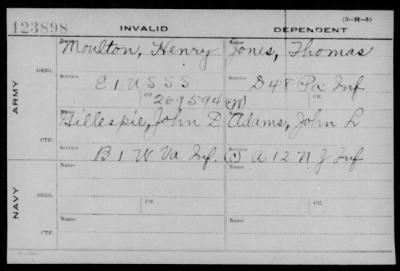 (3-H-5)
123898 INVALID DEPENDENT
ARMY ORIG. Name Moulton, Henry Jones, Thomas
Service E 1 U S S S Service D 48 Pa Inf
Ctf. 269594 (W)
CTF. Gillespie, John D Adams, John L
Service B 1 W Va Inf. (C) A 12 N J Inf
NAVY ORIG. Name Name
Service Ctf. Service Ctf.
CTF. Name Name
Service Service